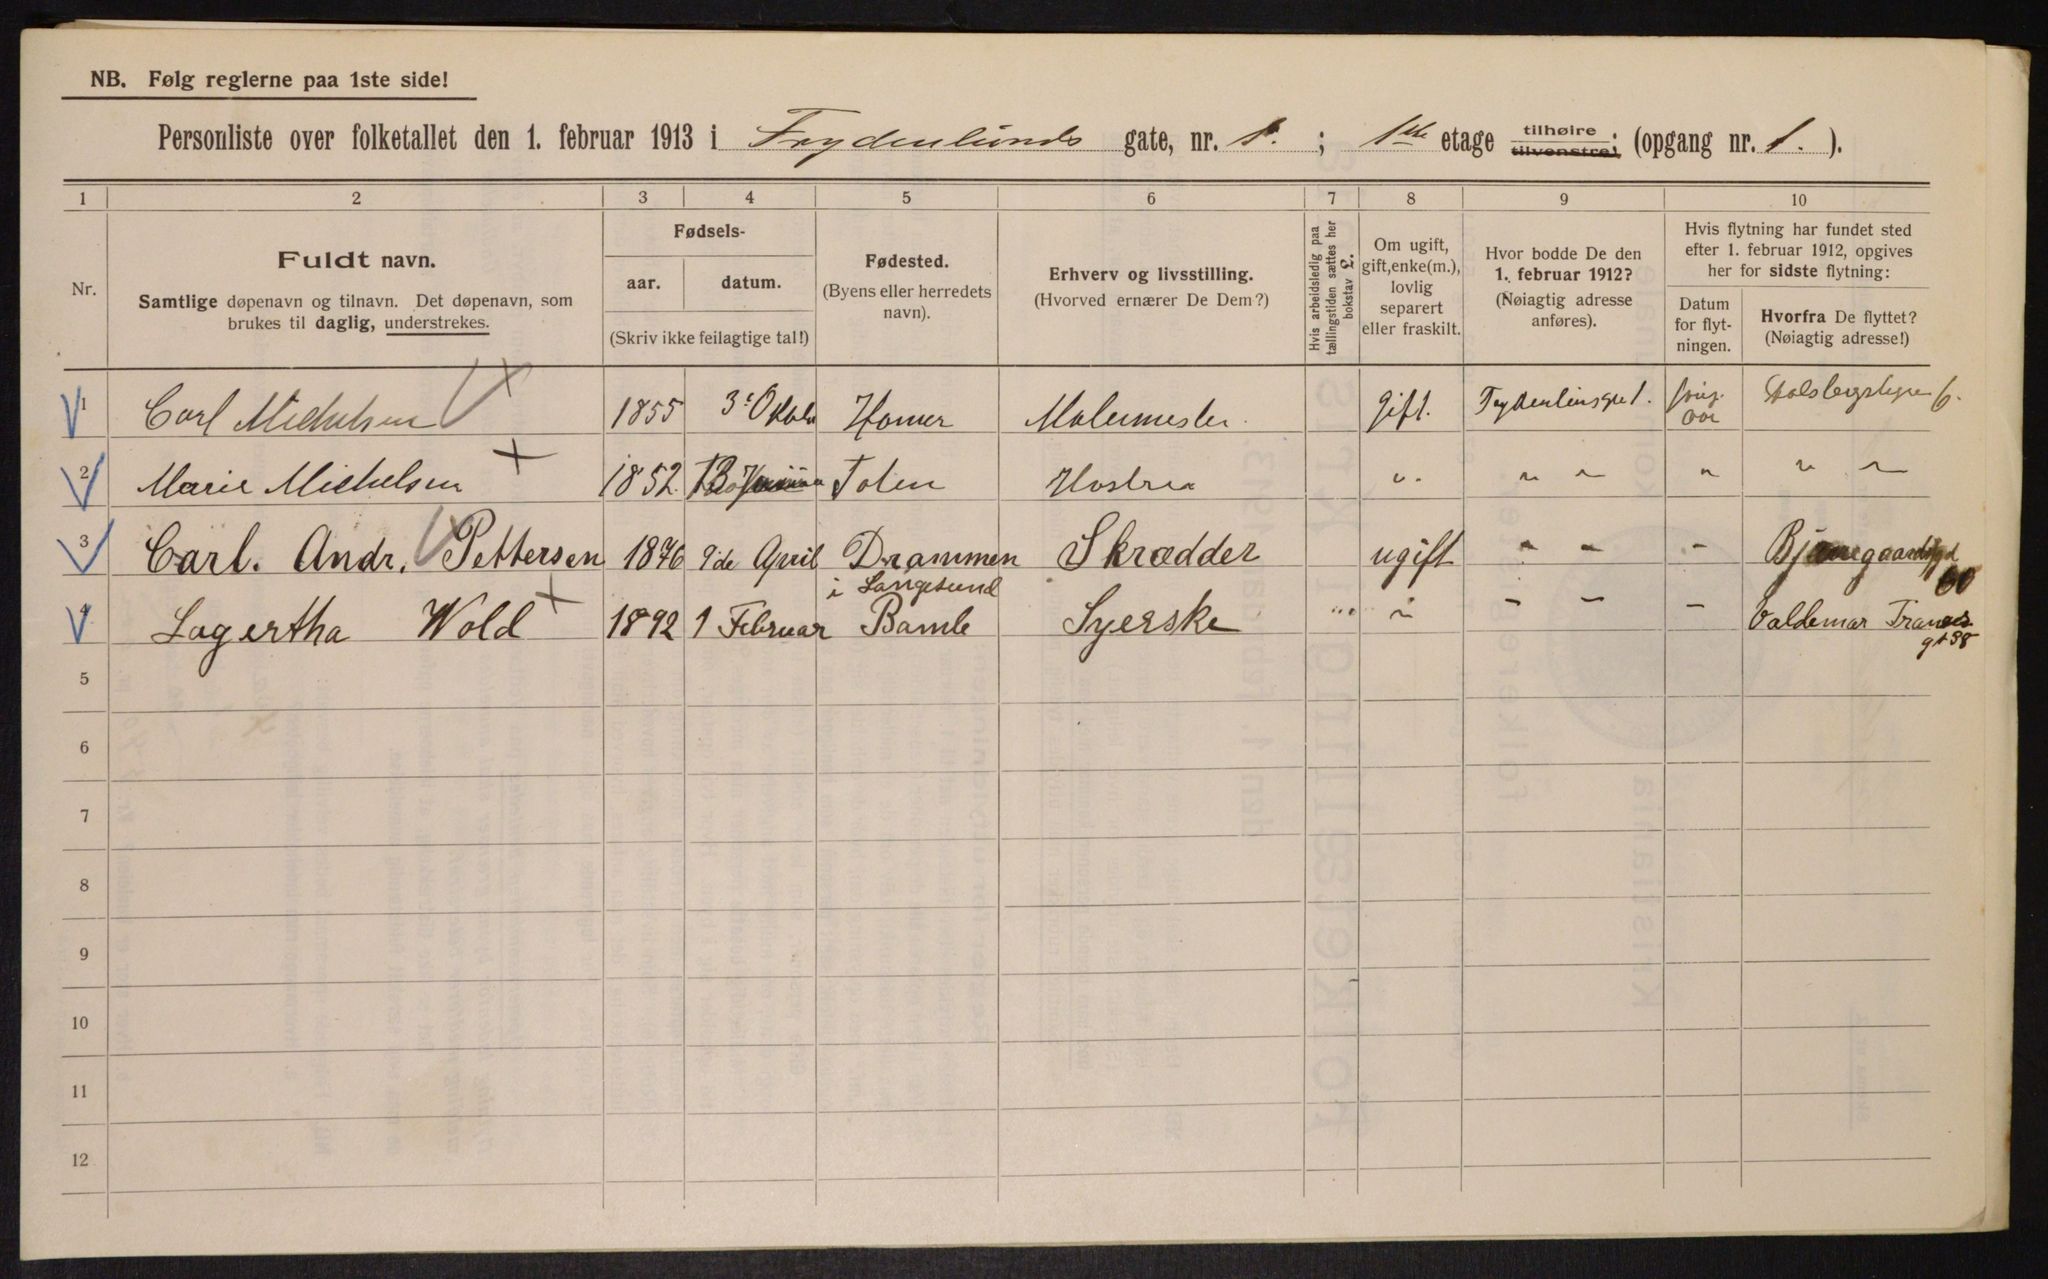 NB. Følg reglerne paa 1ste side!
Personliste over folketallet den 1. februar 1913 i Frydenlunds gate, nr. 1. ; 1ste etage tilhøire tilvenstre; (opgang nr. 1. ).
1 2 3 4 5 6 7 8 9 10
Nr.
Fuldt navn.
Samtlige døpenavn og tilnavn. Det døpenavn, som
brukes til daglig, understrekes.
Fødsels-
aar. datum.
(Skriv ikke feilagtige tal!)
Fødested.
(Byens eller herredets
navn).
Erhverv og livsstilling.
(Hvorved ernærer De Dem?)
Hvis arbeidsledig paa
tællingstiden sættes her
bokstav L.
Om ugift,
gift, enke(m.),
lovlig
separert
eller fraskilt.
Hvor bodde De den
1. februar 1912?
(Nøiagtig adresse
anføres).
Hvis flytning har fundet sted
efter 1. februar 1912, opgives
her for sidste flytning:
Datum
for flyt-
ningen.
Hvorfra De flyttet?
(Nøiagtig adresse!)
1 Carl Michelsen 1855 3 Hamer Malermester gift. 6.
2 Marie Michelsen 1852 Toten Hustru " " " " " "
3 Carl. Andr. Pettersen 1876 9de April Drammen Skrædder ugift - - - 60
i Langesund
4 Lagertha Wold 1892 1 Februar Bamle Syerske " " - - - Valdemar Tranes
gt 38
5
6
7
8
9
10
11
12